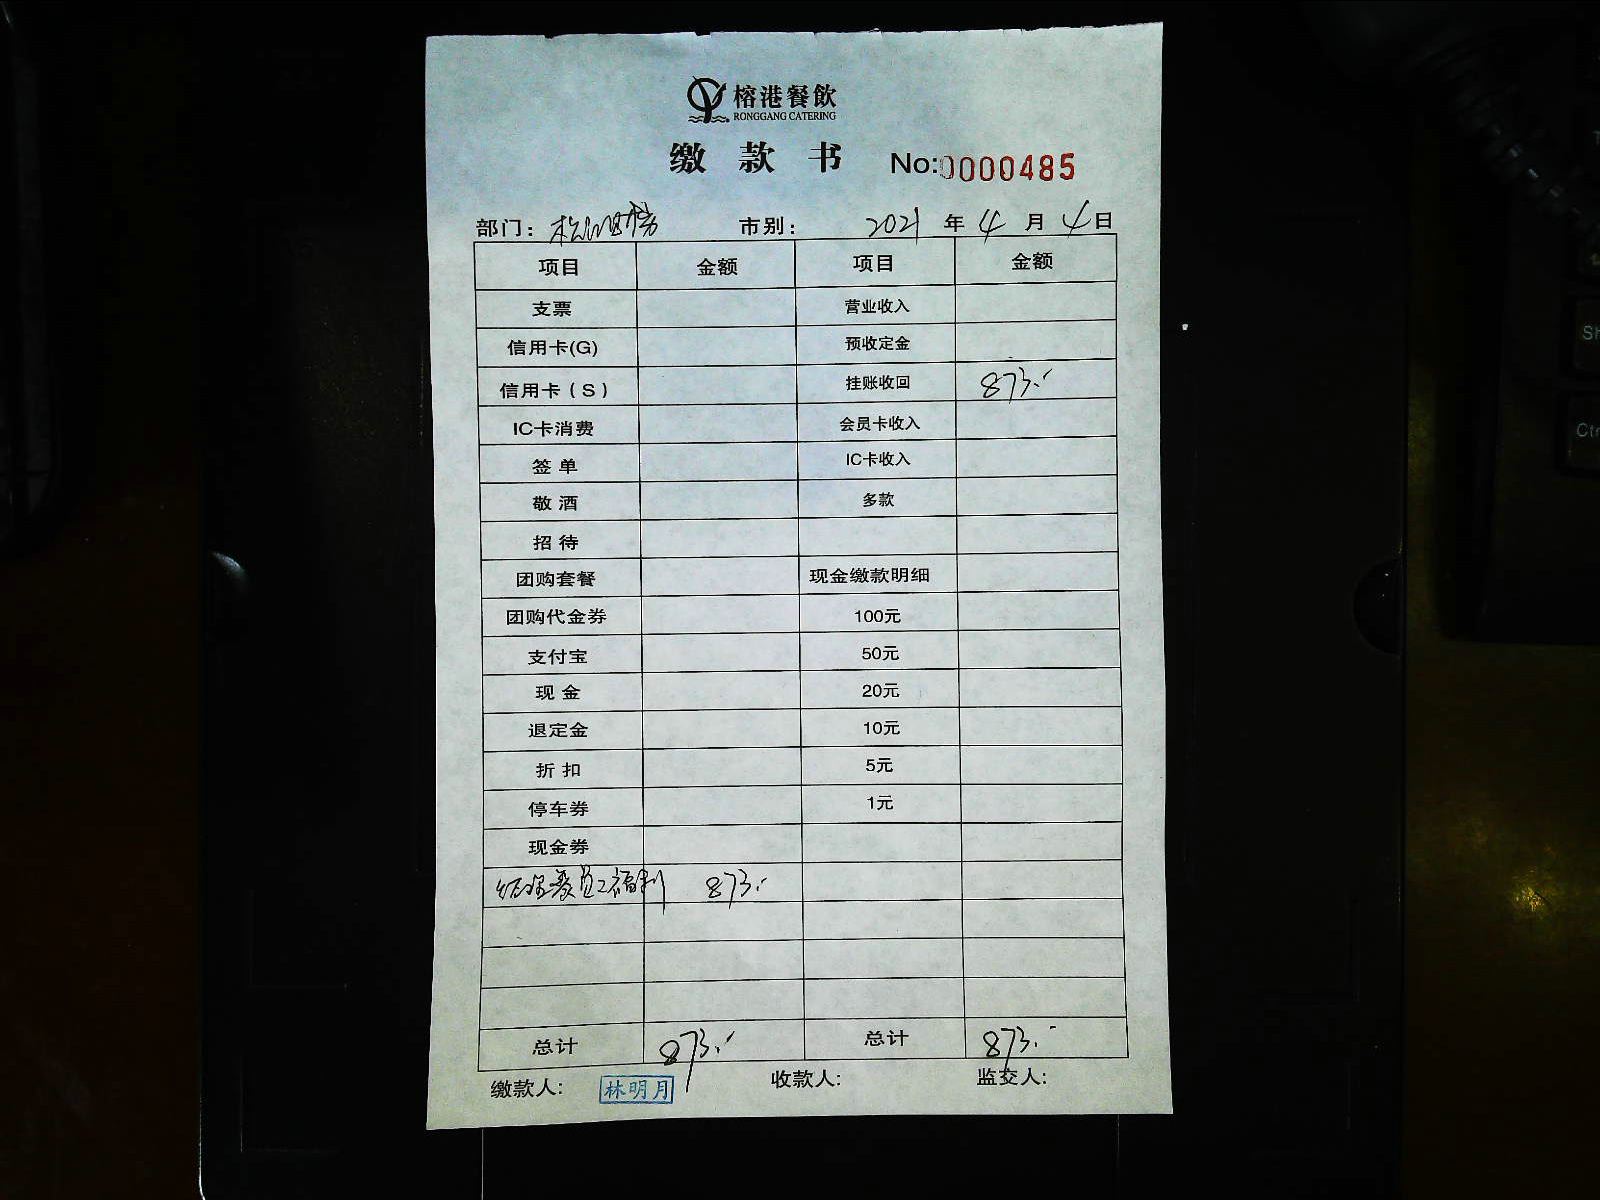 榕港餐飲
RONGGANG CATERING
缴款书 No:0000485
部门: 市别: 2021年4月4日
项目 金额 项目 金额
支票 营业收入
信用卡(G) 预收定金
信用卡(S) 挂账收回 873.-
IC卡消费 会员卡收入
签单 IC卡收入
敬酒 多款
招待
团购套餐 现金缴款明细
团购代金券 100元
支付宝 50元
现金 20元
退定金 10元
折扣 5元
停车券 1元
现金券
员工福利 873.-
总计 873.- 总计 873.-
缴款人: 林明月 收款人: 监交人:
Sh
Ctr